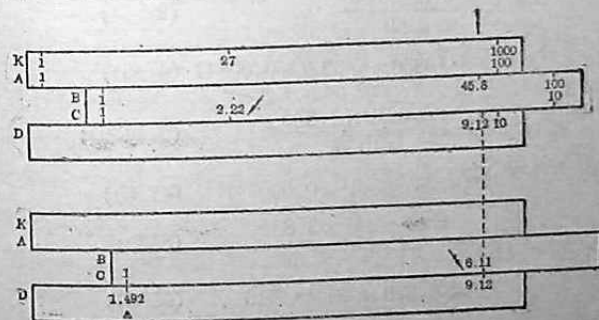 K 1 27 1000
A 1 100
B 1 45.8 100
C 1 2.22 10
D 9.12 10
K
A
B
C 1 6.11
D 1.492 9.12
A